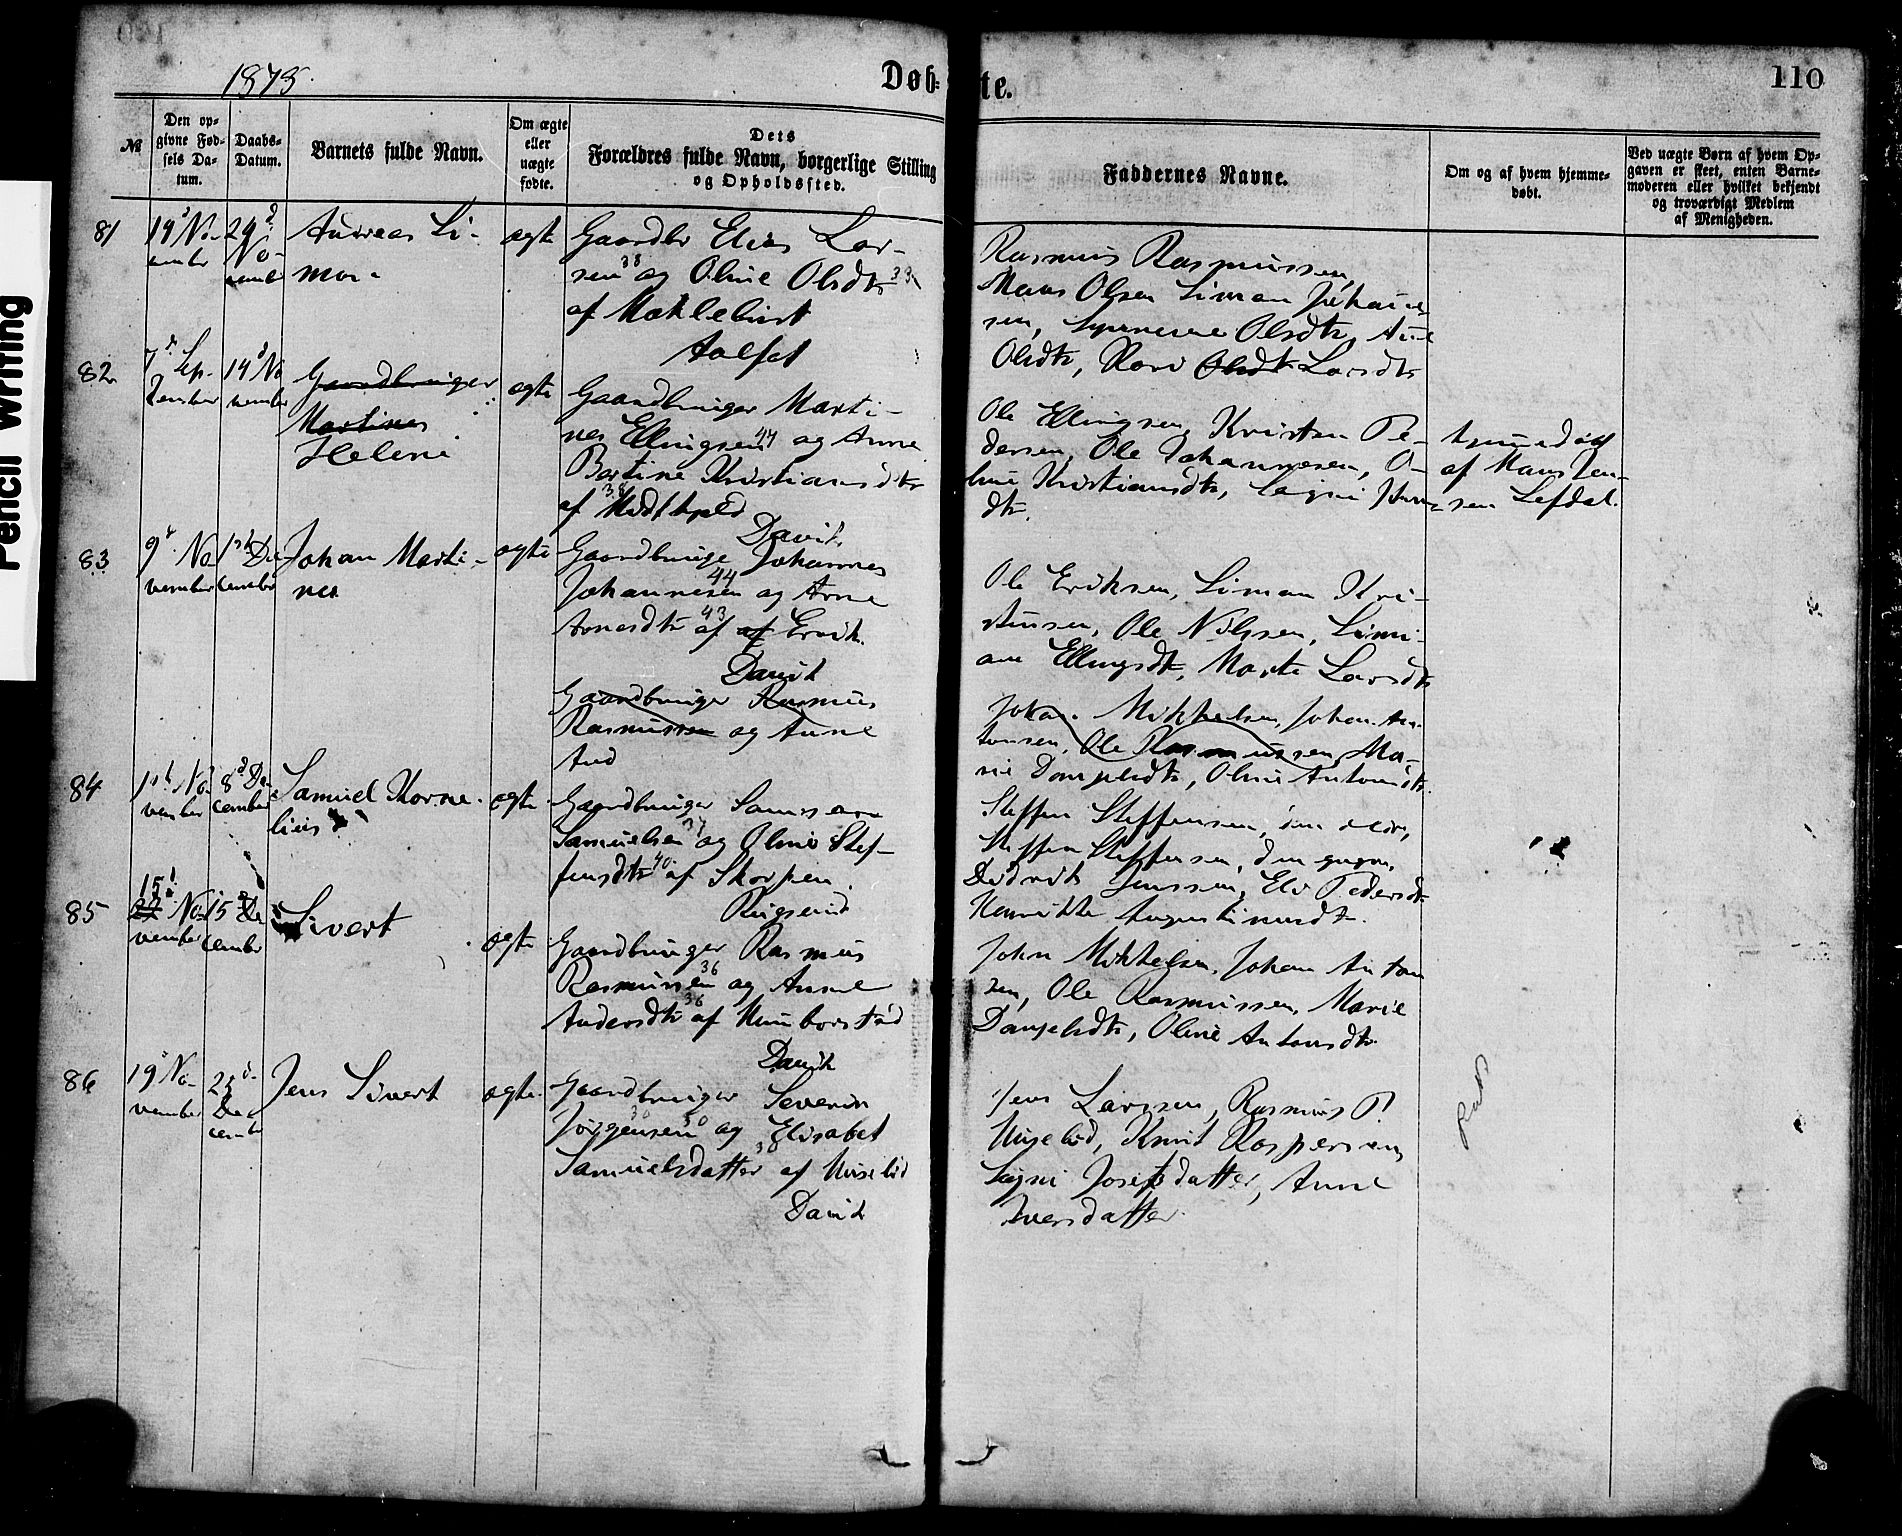 1875.
Døb-te.
110
Pencil Writing
№
Den op-
givne Fød-
sels Da-
tum.
Daabs-
Datum.
Barnets fulde Navn.
Om ægte
eller
uægte
fødte.
Dets
Forældres fulde Navn, borgerlige Stilling
og Opholdssted.
Faddernes Navne.
Om og af hvem hjemme-
døbt.
Ved uægte Børn af hvem Op-
gaven er skeet, enten Barne-
moderen eller hvilket bekjendt
og troværdigt Medlem
af Menigheden.
81
14 No-
vember
29
No-
vember
Andreas Si-
mon
ægte
Gaardbr Elias Lar-
sen 38 og Oline Olsdtr 33
af Mæklebust
Aalfot
Rasmus Rasmussen,
Mons Olsen Simon Johanne-
sen, Olsdtr,
Olsdtr, Kari Olsdtr Larsdtr
82
7 Sep-
tember
14 No
vember
Gaardbruger
Martines
Helene
ægte
Gaardbruger Marti-
nes Ellingsen 44 og Anne
Bertine Kristiansdtr
38
af
David
Ole Ellingsen, Kristen Pe-
dersen, Ole Johannesen, O-
line Kristiansdtr,
dtr.
af Mons Jen-
sen Lefdal.
83
9 No
vember
1st De-
cember
Johan Marti-
nes
ægte
Gaardbruger Johannes
Johannesen 44 og Anne
Arnesdtr 43 af af Ervik.
David
Ole Eriksen, Simon Kri-
stensen, Ole Nilssen, Simi-
ane Ellingsdtr, Marte Larsdtr
Gaardbruger Rasmus
Rasmussen og Anne
And
Johan Mikkelsen, Johan An-
tonsen, Ole Rasmussen, Ma-
rie Danjelsdtr, Oline Antonsdtr.
84
1st No
vember
8d De-
cember
Samuel Korne-
lius
ægte
Gaardbruger
Samuelsen 37 og Oline Stef-
fensdtr 40 af Skorpen.
Rugsund
Steffen Steffensen, den ældre,
Steffen Steffensen, den yngre,
Didrik Jenssen, Eli Pedersdtr
Henrikke Augustinusdtr.
85
15
27 No-
vember
15 De
cember
Sivert
ægte
Gaardbruger Rasmus
Rasmussen 36 og Anne
Andersdtr 36 af Humborstad
David
John Mikkelsen, Johan Anton
sen, Ole Rasmussen, Marie
Danjelsdtr, Oline Antonsdtr.
86
19 No-
vember
25
De-
cember
Jens Sivert
ægte
Gaardbruger Severin
Jörgensen 30 og Elisabet
Samuelsdatter 38 af Huselid
David
Jens Larssen, Rasmus P
Huselid, Knut Kaspersen,
Signi Josefsdatter, Anne
Iversdatter.